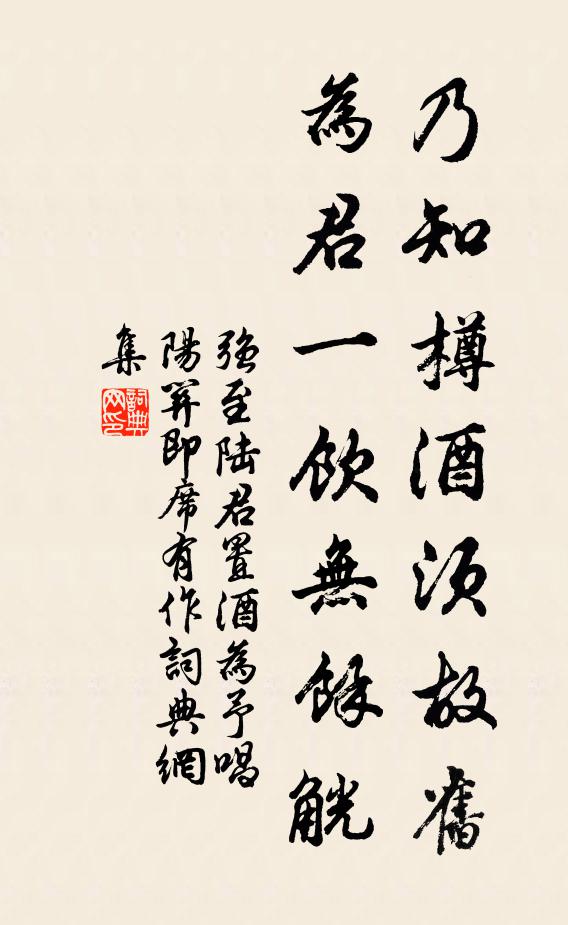 乃知樽酒須故舊
為君一飲無餘觥
强至陸君置酒為予唱
陽關即席有作詞典網
集
詞典
网印